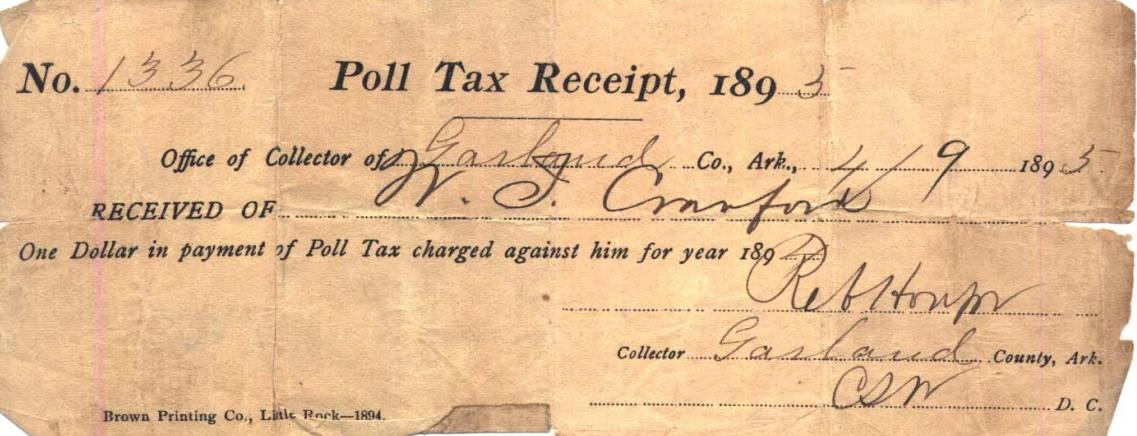 No. 1336 Poll Tax Receipt, 1895
Office of Collector of Garland Co., Ark., 4/9 1895
RECEIVED OF W. T. Crawford
One Dollar in payment of Poll Tax charged against him for year 189
Collector Garland County, Ark.
CSW D. C.
Brown Printing Co., Little Rock—1894.